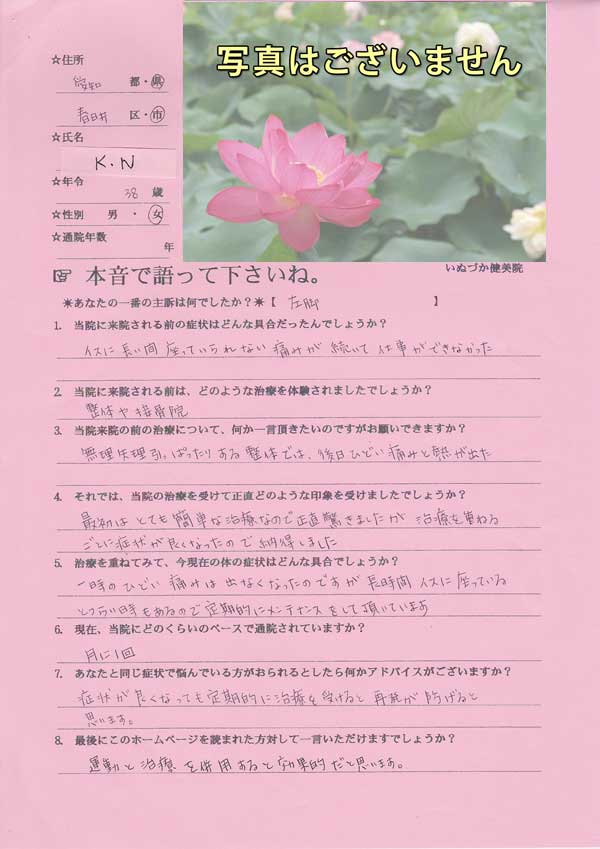 写真はございません
☆住所
愛知 都・県
春日井 区・市
☆氏名
K.N
☆年令
38 歳
☆性別 男・女
☆通院年数
年
いぬづか健美院
☞ 本音で語って下さいね。
✳あなたの一番の主訴は何でしたか?✳【 左脚 】
1. 当院に来院される前の症状はどんな具合だったんでしょうか?
イスに長い間座っていられない痛みが続いて仕事ができなかった
2. 当院に来院される前は、どのような治療を体験されましたでしょうか?
整体や接骨院
3. 当院来院の前の治療について、何か一言頂きたいのですがお願いできますか?
無理矢理引っぱったりある整体では、後日ひどい痛みと熱が出た
4. それでは、当院の治療を受けて正直どのような印象を受けましたでしょうか?
最初はとても簡単な治療なので正直驚きましたが治療を重ねる
ごとに症状が良くなったので納得しました
5. 治療を重ねてみて、今現在の体の症状はどんな具合でしょうか?
一時のひどい痛みは出なくなったのですが長時間イスに座っている
とつらい時もあるので定期的にメンテナンスをして頂いています
6. 現在、当院にどのくらいのペースで通院されていますか?
月に1回
7. あなたと同じ症状で悩んでいる方がおられるとしたら何かアドバイスがございますか?
症状が良くなっても定期的に治療を受けると再発が防げると
思います。
8. 最後にこのホームページを読まれた方対して一言いただけますでしょうか?
運動と治療を併用すると効果的だと思います。